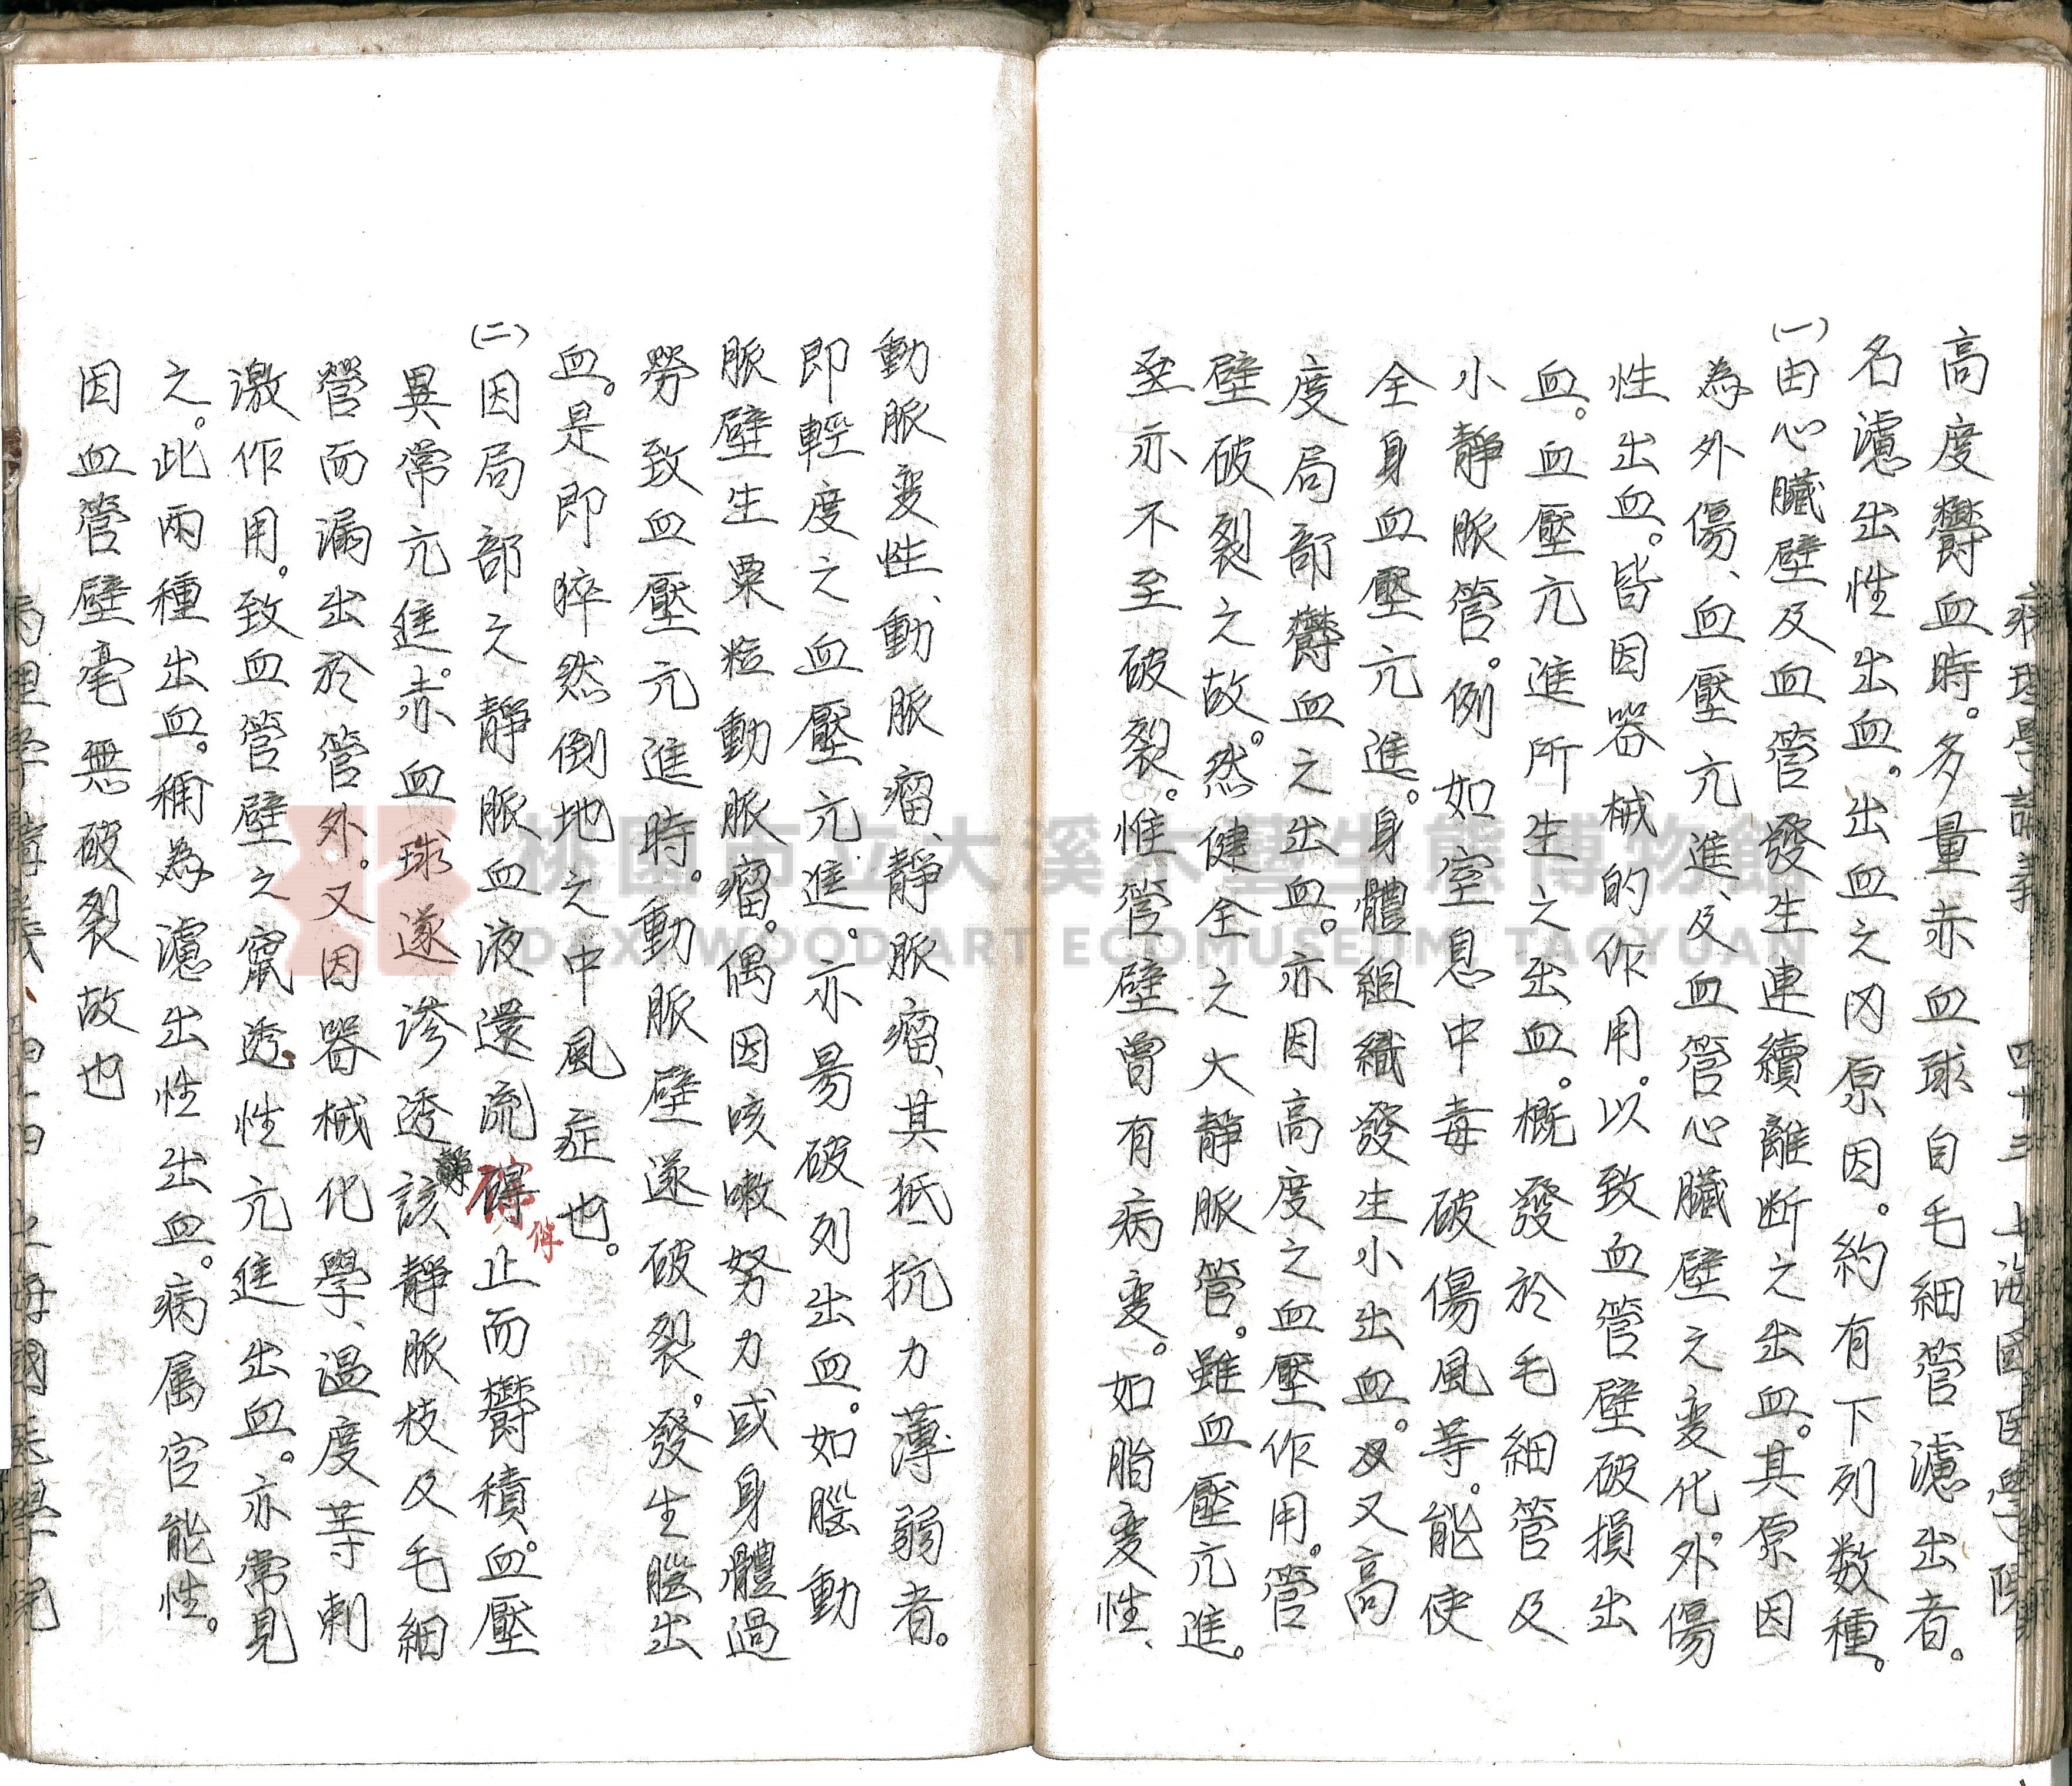 病理學講義 四十三 上海國医學院
高度欝血時。多量赤血球自毛細管濾出者。
名濾出性出血。出血之内原因。約有下列数種。
(一)由心臟壁及血管發生連續離断之出血。其原因
為外傷、血壓亢進、及血管心臟壁之変化。外傷
性出血。皆因器械的作用。以致血管壁破損出
血。血壓亢進所生之出血。概發於毛細管及
小靜脈管。例如窒息中毒破傷風等。能使
全身血壓亢進。身體組織發生小出血。又高
度局部欝血之出血。亦因高度之血壓作用。管
壁破裂之故。然健全之大靜脈管。雖血壓亢進。
至亦不至破裂。惟管壁曾有病変。如脂変性、
動脈変性、動脈瘤、靜脈瘤、其抵抗力薄弱者。
即輕度之血壓亢進。亦易破列出血。如腦動
脈壁生粟粒動脈瘤。偶因咳嗽努力或身體過
勞致血壓亢進時。動脈壁遂破裂。發生腦出
血。是即猝然倒地之中風症也。
(二)因局部之靜脈血液還流停止而欝積。血壓
異常亢進。赤血球遂滲透該靜脈枝及毛細
管而漏出於管外。又因器械化學、溫度等刺
激作用。致血管壁之竄透性亢進出血。亦常見
之。此兩種出血。稱為濾出性出血。病属官能性。
因血管壁毫無破裂故也
病理学講義 四十四 上海國医學院
桃園市立大溪木藝生態博物館
DAXI WOOD ART ECOMUSEUM, TAOYUAN